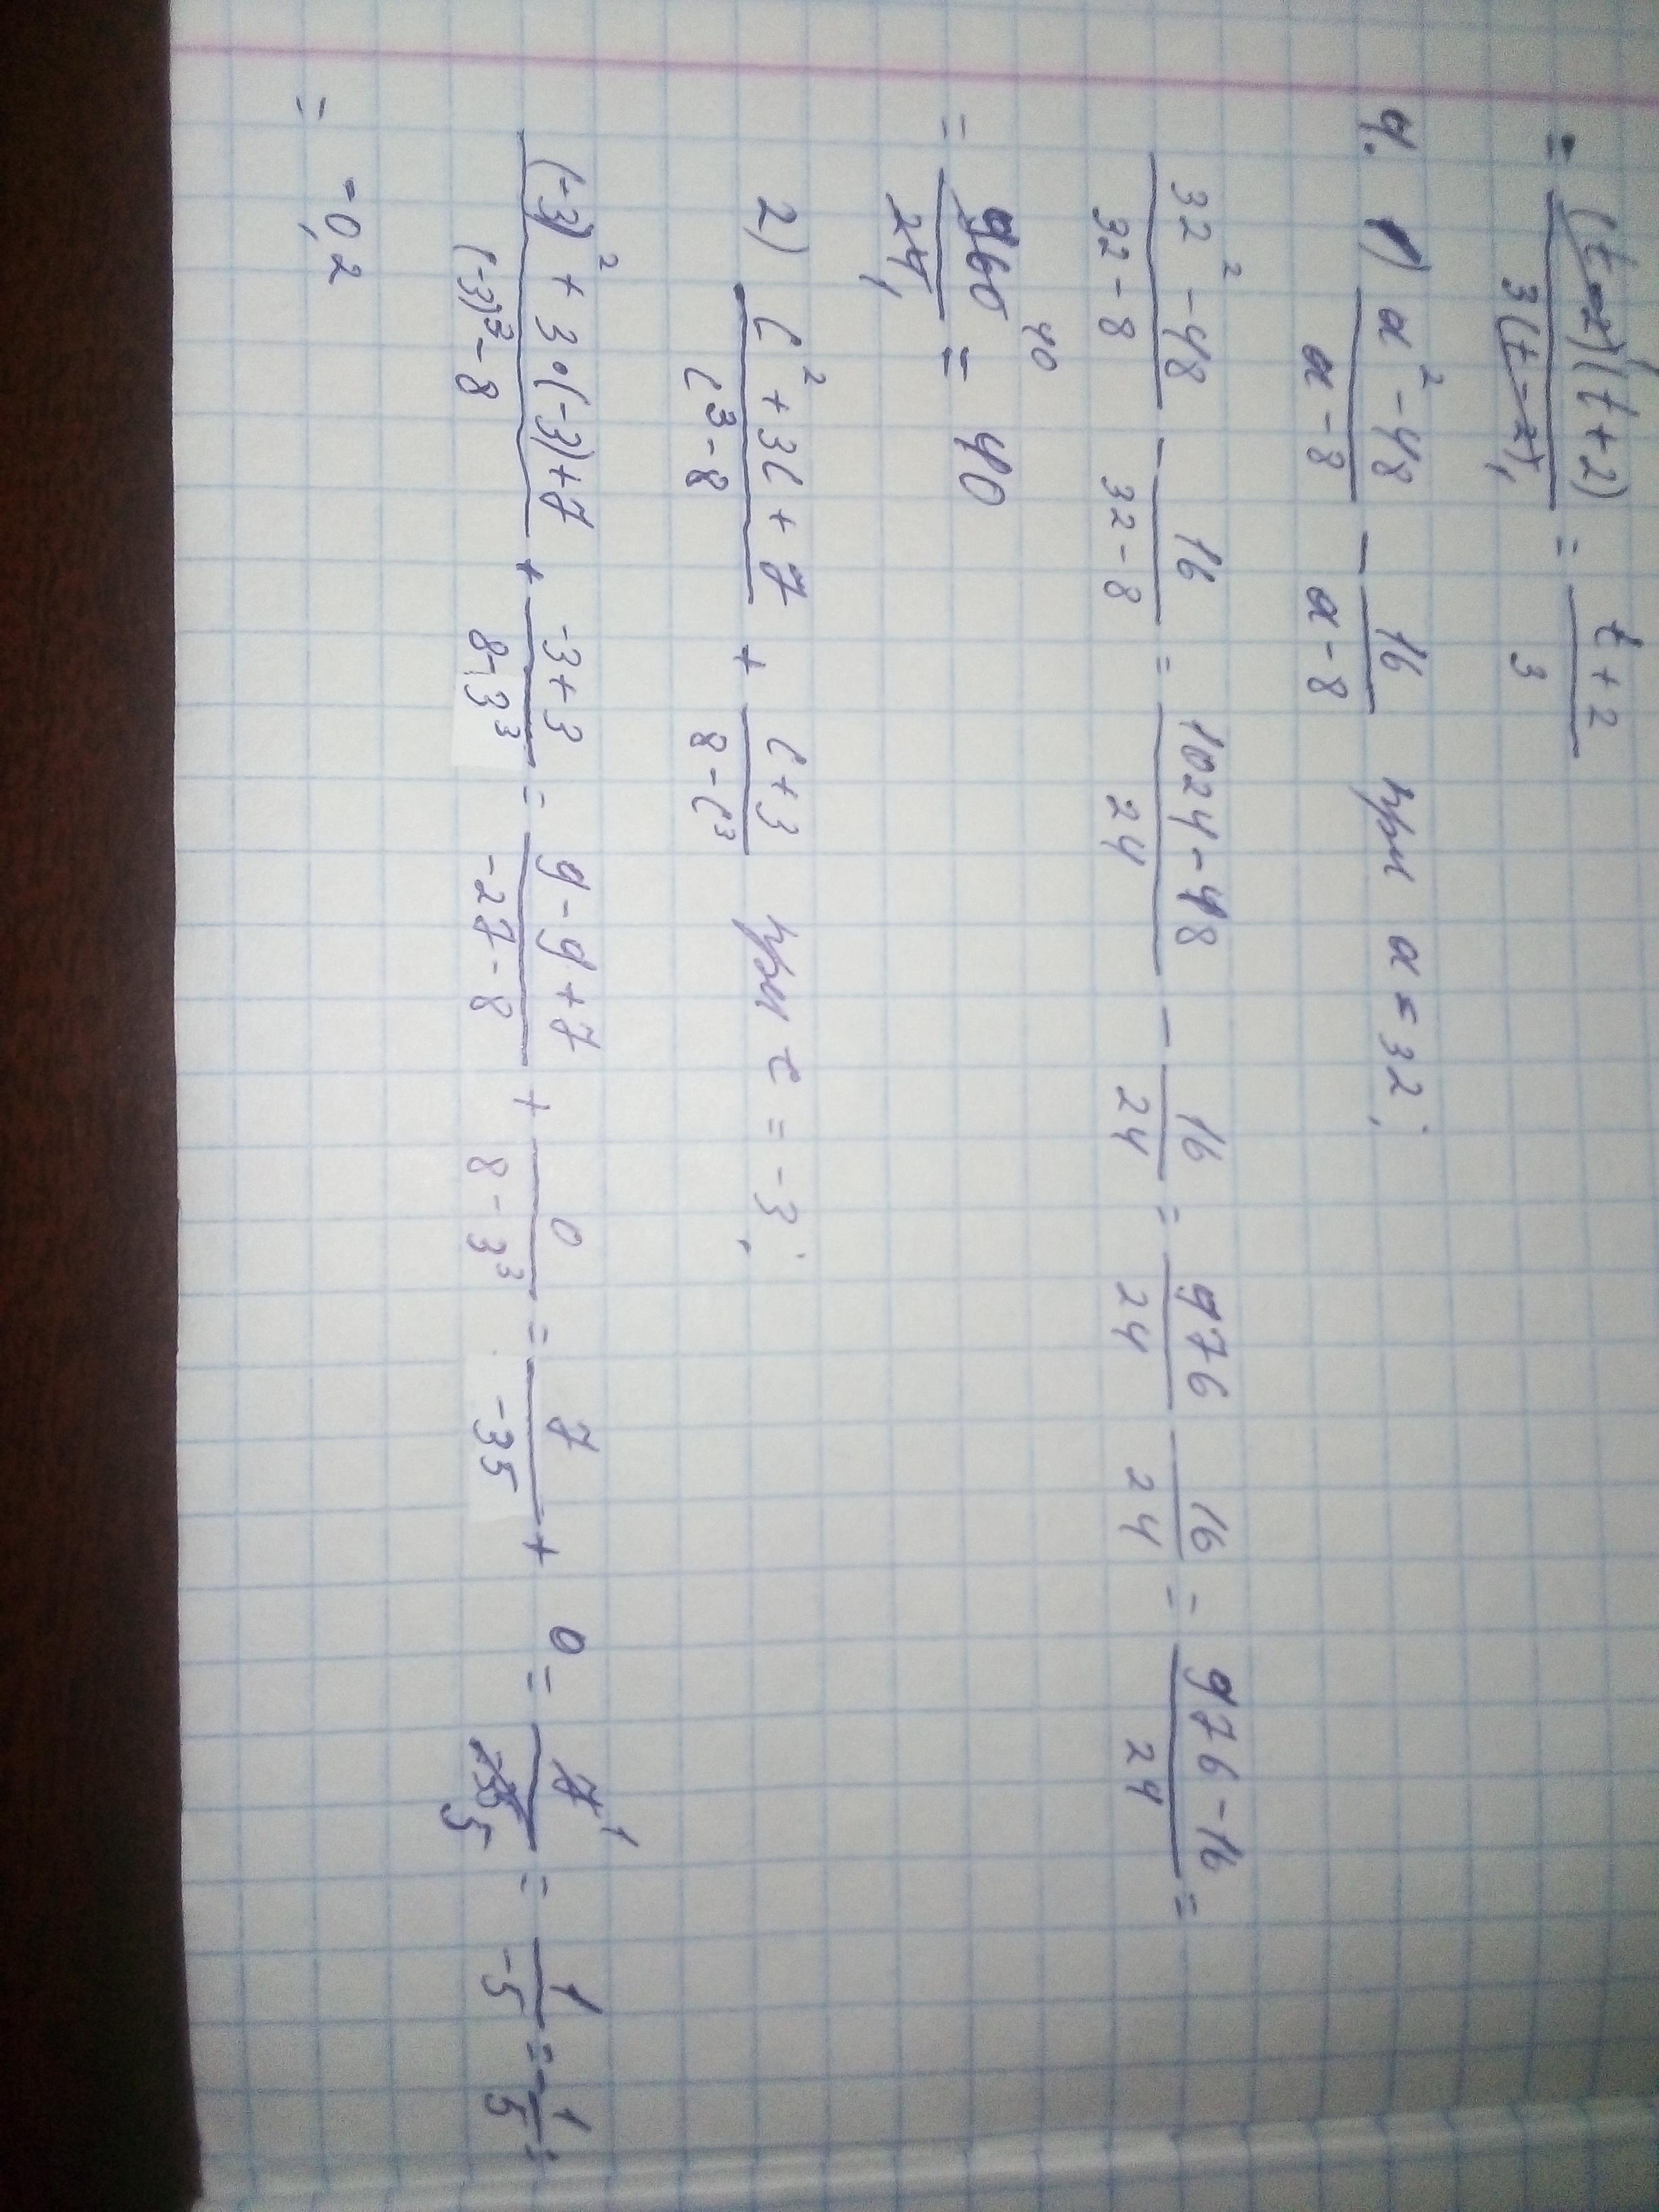 = (t-2)(t+2) / 3(t-2) = t+2 / 3
4. 1) a² - 48 / a - 8 - 16 / a - 8 при a = 32;
32² - 48 / 32 - 8 - 16 / 32 - 8 = 1024 - 48 / 24 - 16 / 24 = 976 / 24 - 16 / 24 = 976 - 16 / 24 =
= 960 40 / 24 1 = 40
2) c² + 3c + 7 / c³ - 8 + c + 3 / 8 - c³ при c = -3;
(-3)² + 3·(-3) + 7 / (-3)³ - 8 + -3 + 3 / 8 - 3³ = 9 - 9 + 7 / -27 - 8 + 0 / 8 - 3³ = 7 / -35 + 0 = 7 1 / -35 5 = 1 / -5 = - 1 / 5 =
= -0,2